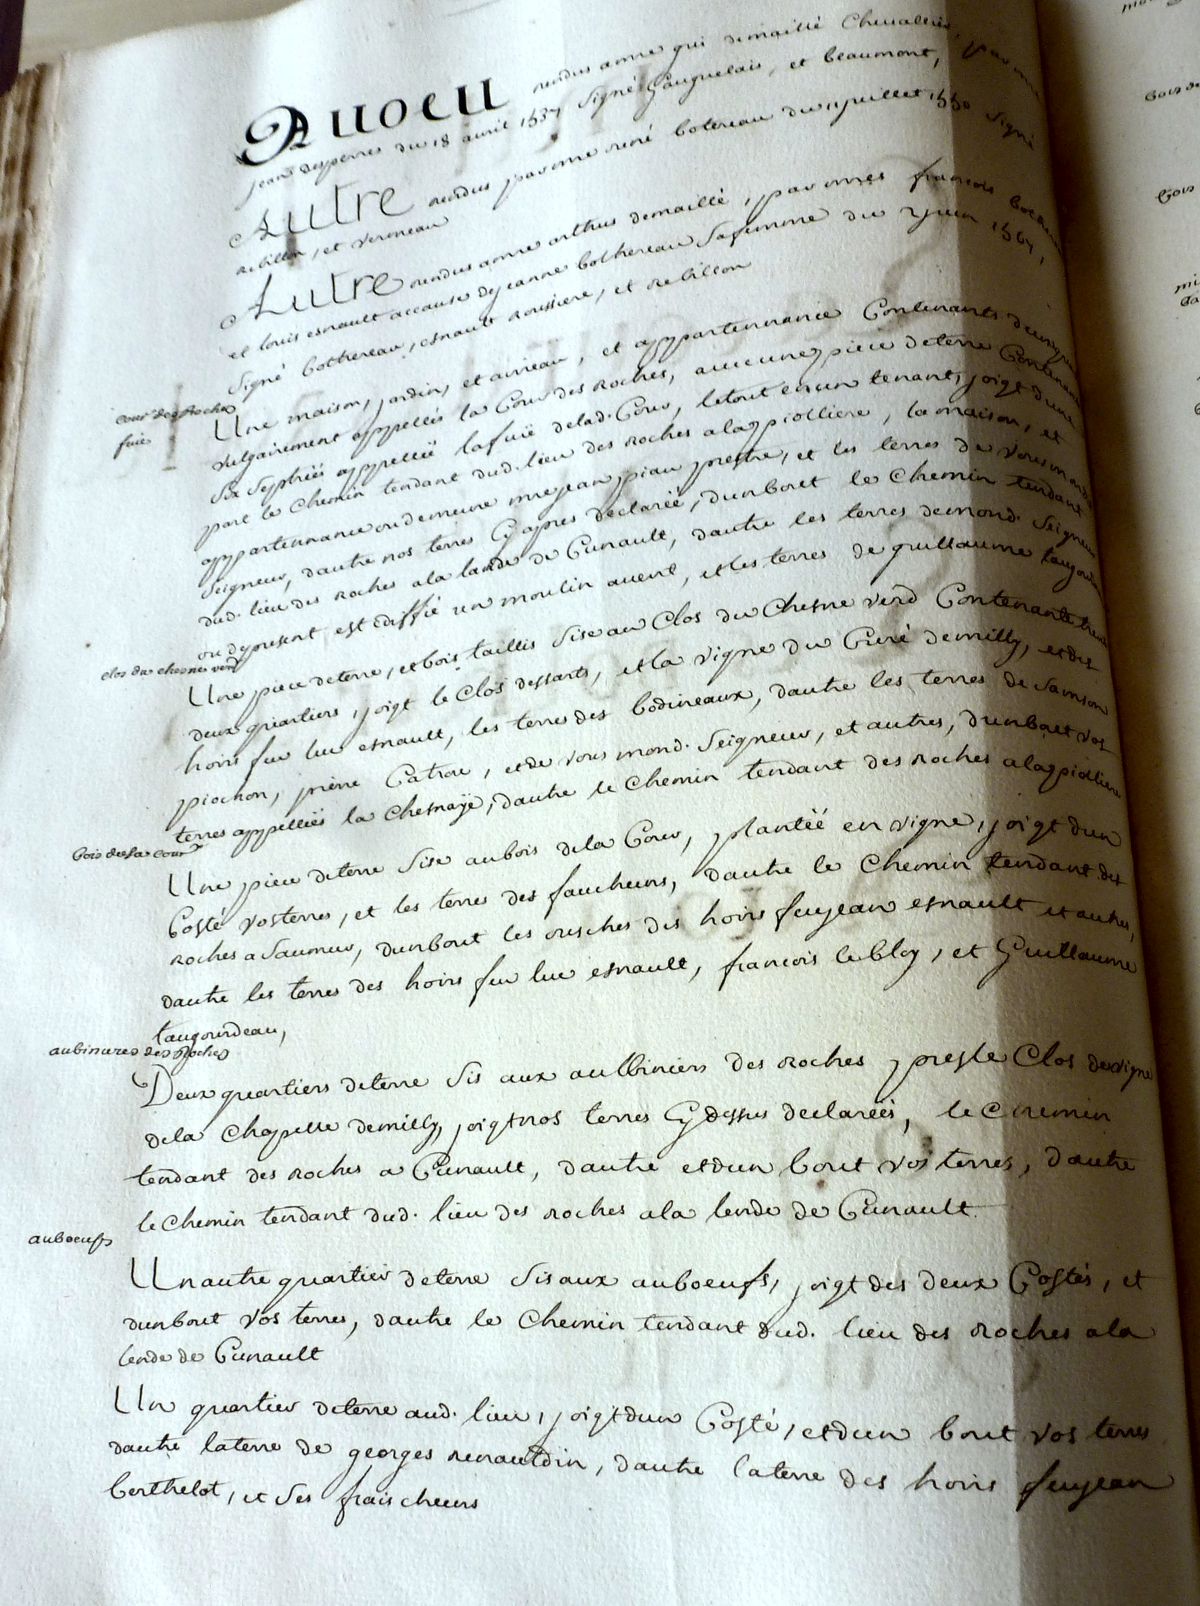 Auoeu rendus a mre gui demaillé Chevallier, par mre
Jean desperres du 18 avril 1537 signé Gauguelais, et beaumont,
Autre rendus par mre rené botereau du 11 juillet 1550 signé
rebillon, et verneau
Autre rendus a mre arthus demaillé, par mres francois bothereau
et louis esnault acause de jeanne bothereau sa femme du 2 juin 1567,
signé bothereau, esnault roussiere, et rebillon
cour des Roches
fuie
Une maison, jardin, et aireau, et appartennance Contenants
vulgairement appellés la Cour des Roches, avec une piece deterre Contenant
six septrées appellée lafuie delad. Cour, letout enun tenant, joigt dune
part le Chemin tendant dud. lieu des roches ala piolliere, la maison, et
appartennance ou demeure mre jean piau prestre, et les terres de vous mond.
seigneur, dautre nos terres Cy apres declarée, dun bout le Chemin tendant
dud. lieu des roches ala lande de Cunault, dautre les terres demond. Seigneur
ou depresent est Ediffié un moulin avent, et les terres de guillaume taugourdeau
clos du chesne verd
Une piece deterre, et bois taillis sise au Clos du Chesne verd Contenante trente
deux quartiers, joigt le Clos dessarts, et la vigne du Curé demilly, et des
hoirs feu luc esnault, les terres des bodineaux, dautre les terres de samson
piochon, pierre Catrou, et de vous mond. Seigneur, et autres, dun bout vos
terres appellées la Chesnaÿe, dautre le Chemin tendant des roches ala piolliere
bois dela cour
Une piece deterre sise au bois dela Cour, plantéé en vigne, joigt dun
Costé vos terres, et les terres des faucheurs, dautre le Chemin tendant des
roches a Saumur, dun bout les ousches des hoirs feu jean esnault et autres,
dautre les terres des hoirs feu luc esnault, francois lebloy, et Guillaume
taugourdeau,
aubinieres des Roches
Deux quartiers deterre sis aux aulbiniers des roches pres le Clos de vigne
dela Chapelle demilly, joigt nos terres Cy dessus declarées, le Chemin
tendant des roches a Cunault, dautre et dun bout vos terres, dautre
le Chemin tendant dud. lieu des roches ala lende de Cunault.
auboeufs
Un autre quartier deterre sis aux auboeufs, joigt des deux Costés, et
dun bout vos terres, dautre le Chemin tendant dud. lieu des roches ala
lende de Cunault
Un quartier deterre aud. lieu, joigt dun Costé, et dun bout vos terres
dautre laterre de georges renauldin, dautre laterre des hoirs feu jean
berthelot, et ses fraischeurs